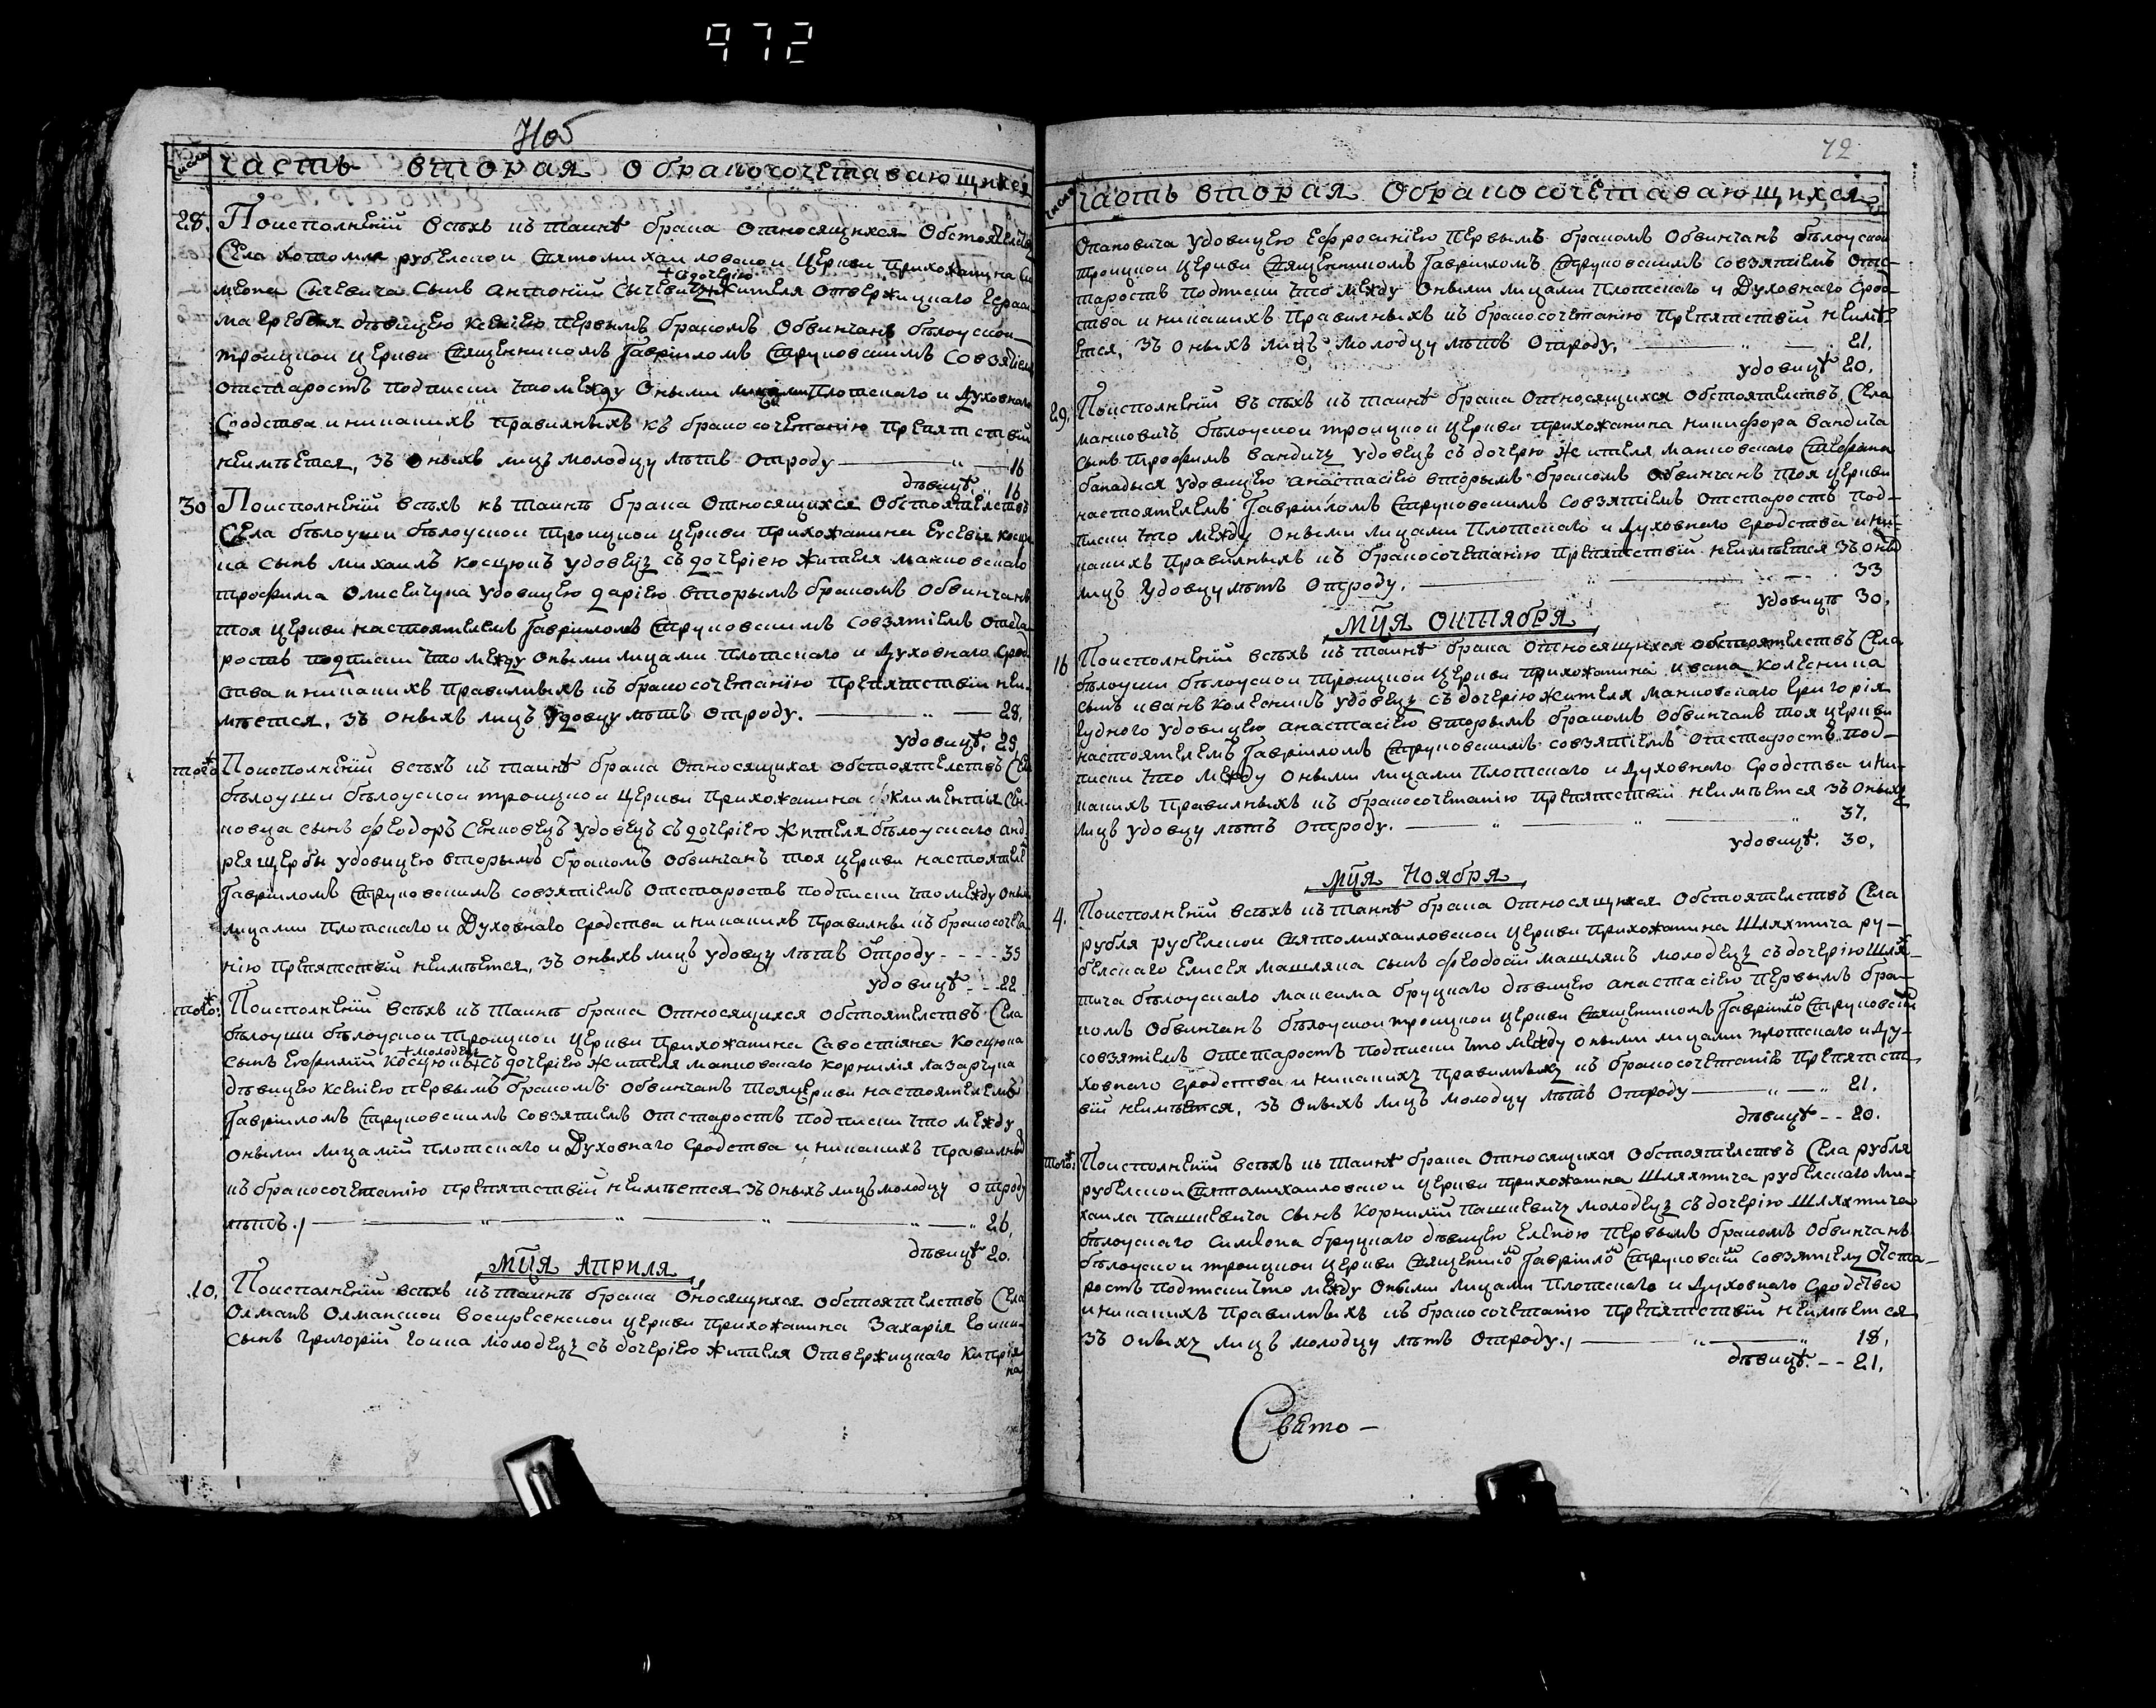 972
Числа
Часть вторая о бракосочетавающихся
28. Поисполнении всѣхъ къ таинѣ брака относящихся Обстоятелствъ
Села хотомля рубелской Святомихаиловской Церкви прихожанина Си
+ съдочерію
меона Сычевича сынъ антоній Сычевичъ жителя отвержицкаго
дѣвицею Ксенію первымъ бракомъ Обвинчанъ бѣлоуской
троицкой церкви Священникомъ Гавріиломъ Струковскимъ Совзятіемъ
отстаростъ подписки что между Оными лицами плотскаго и Духовнаго
Сродства и никакихъ правилныхъ къ бракосочетанію препятствий
неимѣется, зъ Оныхъ лицъ молодцу лѣтъ Отроду — „ — 16
дѣвицѣ „ 16
30 Поисполнении всѣхъ къ таинѣ брака Относящихся Обстоятелствъ
Села бѣлоуши бѣлоуской троицкой церкви прихожанина Евсевія косцю
ка сынъ михаилъ косцюкъ удовецъ съ дочеріею жителя манковскаго
трофима Олисейчука удовицею дарією вторымъ бракомъ Обвинчанъ
тоя церкви настоятелемъ Гавріиломъ Струковскимъ Совзятіемъ Отста
ростъ подписки что между Оными лицами плотскаго и Духовнаго Срод
ства и никакихъ правилныхъ къ бракосочетанію препятствий неи
мѣется, зъ оныхъ лицъ удовцу лѣтъ отроду. — „ — 28,
удовицѣ. 29,
тогоѣ Поисполнении всѣхъ къ таинѣ брака Относящихся обстоятелствъ Села
бѣлоуши бѣлоуской троицкой Церкви прихожанина Климентія Сен
ковца сынъ феодоръ Сенковецъ удовецъ съдочеріею жителя бѣлоускаго анд
рея щербы удовицею вторымъ бракомъ обвинчанъ тоя церкви настоятелем
Гавріиломъ Струковскимъ совзятіемъ отстаростъ подписки что между Оными
лицами плотскаго и Духовнаго сродства и никакихъ правилны къ бракосочета
нію препятствий неимѣется, зъ оныхъ лицъ удовцу лѣтъ Отроду - - - - 35
удовицѣ - - 22
тогоѣ: Поисполнении всѣхъ къ таинѣ брака Относящихся обстоятелствъ Села
бѣлоуши бѣлоуской троицкой Церкви прихожанина Савостіяна Косцюка
+ молодецъ
сынъ Ефимий Косцюкъ + съдочеріею жителя манковскаго Корнилія Лазарчука
дѣвицею ксеніею первымъ бракомъ обвинчанъ тояцеркви настоятелемъ
Гавріиломъ Струковскимъ Совзятіемъ Отстаростъ подписки что между
оными лицамий плотскаго и Духовнаго Сродства и никакихъ правилныхъ
къ бракосочетанію препятствий неимѣется зъ оныхъ лицъ молодцу отроду
лѣтъ./ — „ — „ — „ — „ — „ 26,
дѣвицѣ 20.
Мця Априля
10. Поисполнении всѣхъ къ таинѣ брака Оносящихся обстоятелствъ Села
Олманъ Олманской воскресенской церкви прихожанина Захарія
сынъ григорий гоика молодецъ съ дочеріею жителя Отвержицкаго Кипрія
на
72
Числа
Часть вторая Обракосочетавающихся
Опановича удовицею Ефросинією первымъ бракомъ Обвинчанъ бѣлоуской
троицкой Церкви Священникомъ Гавріиломъ Струковскимъ совзятіемъ Отс-
таростъ подписки что между Оными лицами плотскаго и Духовнаго Срод
ства и никакихъ правилныхъ къ бракосочетанію препятствий неимѣ
ется, зъ оныхъ лицъ молодцу лѣтъ Отроду, — „ — 21.
удовицѣ 20.
29, Поисполнении въ сѣхъ къ таинѣ брака Относящихся обстоятелствъ Села
манковичъ бѣлоуской троицкой церкви прихожанина никифора вандича
сынъ трофимъ вандичъ удовецъ съ дочерю жителя манковскаго Стефана
бападыся удовицею анастасією вторымъ бракомъ обвинчанъ тоя Церкви
настоятелемъ Гавріиломъ Струковскимъ совзятіемъ отстаростъ под-
писки что между Оными лицами плотскаго и Духовнаго сродства и ни-
какихъ правилныхъ къ бракосочетанію препятствий неимѣется зъ оныхъ
лицъ удовцу лѣтъ Отроду. — „ — 33
удовицѣ 30,
Мця Октября
16 Поисполнении всѣхъ къ таинѣ брака Относящихся обстоятелствъ Села
бѣлоуши бѣлоуской троицкой Церкви прихожанина ивана Колесника
сынъ иванъ Колесникъ удовецъ съ дочерію жителя манковскаго григорія
Лудного удовицею анастасією вторымъ бракомъ Обвинчанъ тоя церкви
настоятелемъ Гавріиломъ Струковскимъ совзятіемъ отстаростъ под-
писки что между оными лицами плотскаго и Духовнаго Сродства и ни-
какихъ правилныхъ къ бракосочетанію препятствий неимѣется зъ оныхъ
лицъ удовцу лѣтъ отроду. — „ — „ — „ 37.
удовицѣ. 30,
Мця Ноября
4. Поисполнении всѣхъ къ таинѣ брака Относящихся Обстоятелствъ Села
рубля рубелской Святомихаиловской Церкви прихожанина Шляхтича ру-
белскаго Елисея машляка сынъ феодосий машлякъ молодецъ съдочерію шлях-
тича бѣлоускаго максима бруцкаго дѣвицею анастасією первымъ бра-
комъ Обвинчанъ бѣлоуской троицкой церкви Священникомъ Гавріиломъ Струковским
совзятіемъ Отстаростъ подписки что между оными лицами плотскаго и Ду-
ховнаго сродства и никакихъ правилныхъ къ бракосочетанію препятст-
вій неимѣется, зъ Оныхъ лицъ молодцу лѣтъ Отроду — „ — „ 21.
дѣвицѣ - - 20.
тогоѣ: Поисполнении всѣхъ къ таинѣ брака Относящихся Обстоятелствъ Села рубля
рубелской Святомихаиловской Церкви прихожанина Шляхтича рубелскаго Ми-
хаила пашкевича Сынъ Корнилий пашкевичъ молодецъ съ дочерію Шляхтича
бѣлоускаго Симеона бруцкаго дѣвицею Еленою первымъ бракомъ Обвинчанъ
бѣлоуской троицкой Церкви Священником Гавріилом Струковским Совзятіемъ Отста-
ростъ подписки что между Оными лицами плотскаго и Духовнаго Сродства
и никакихъ правилныхъ къ бракосочетанію препятствий неимѣется
зъ оныхъ лицъ молодцу лѣтъ отроду./ — „ — „ 18,
дѣвицѣ. - - 21.